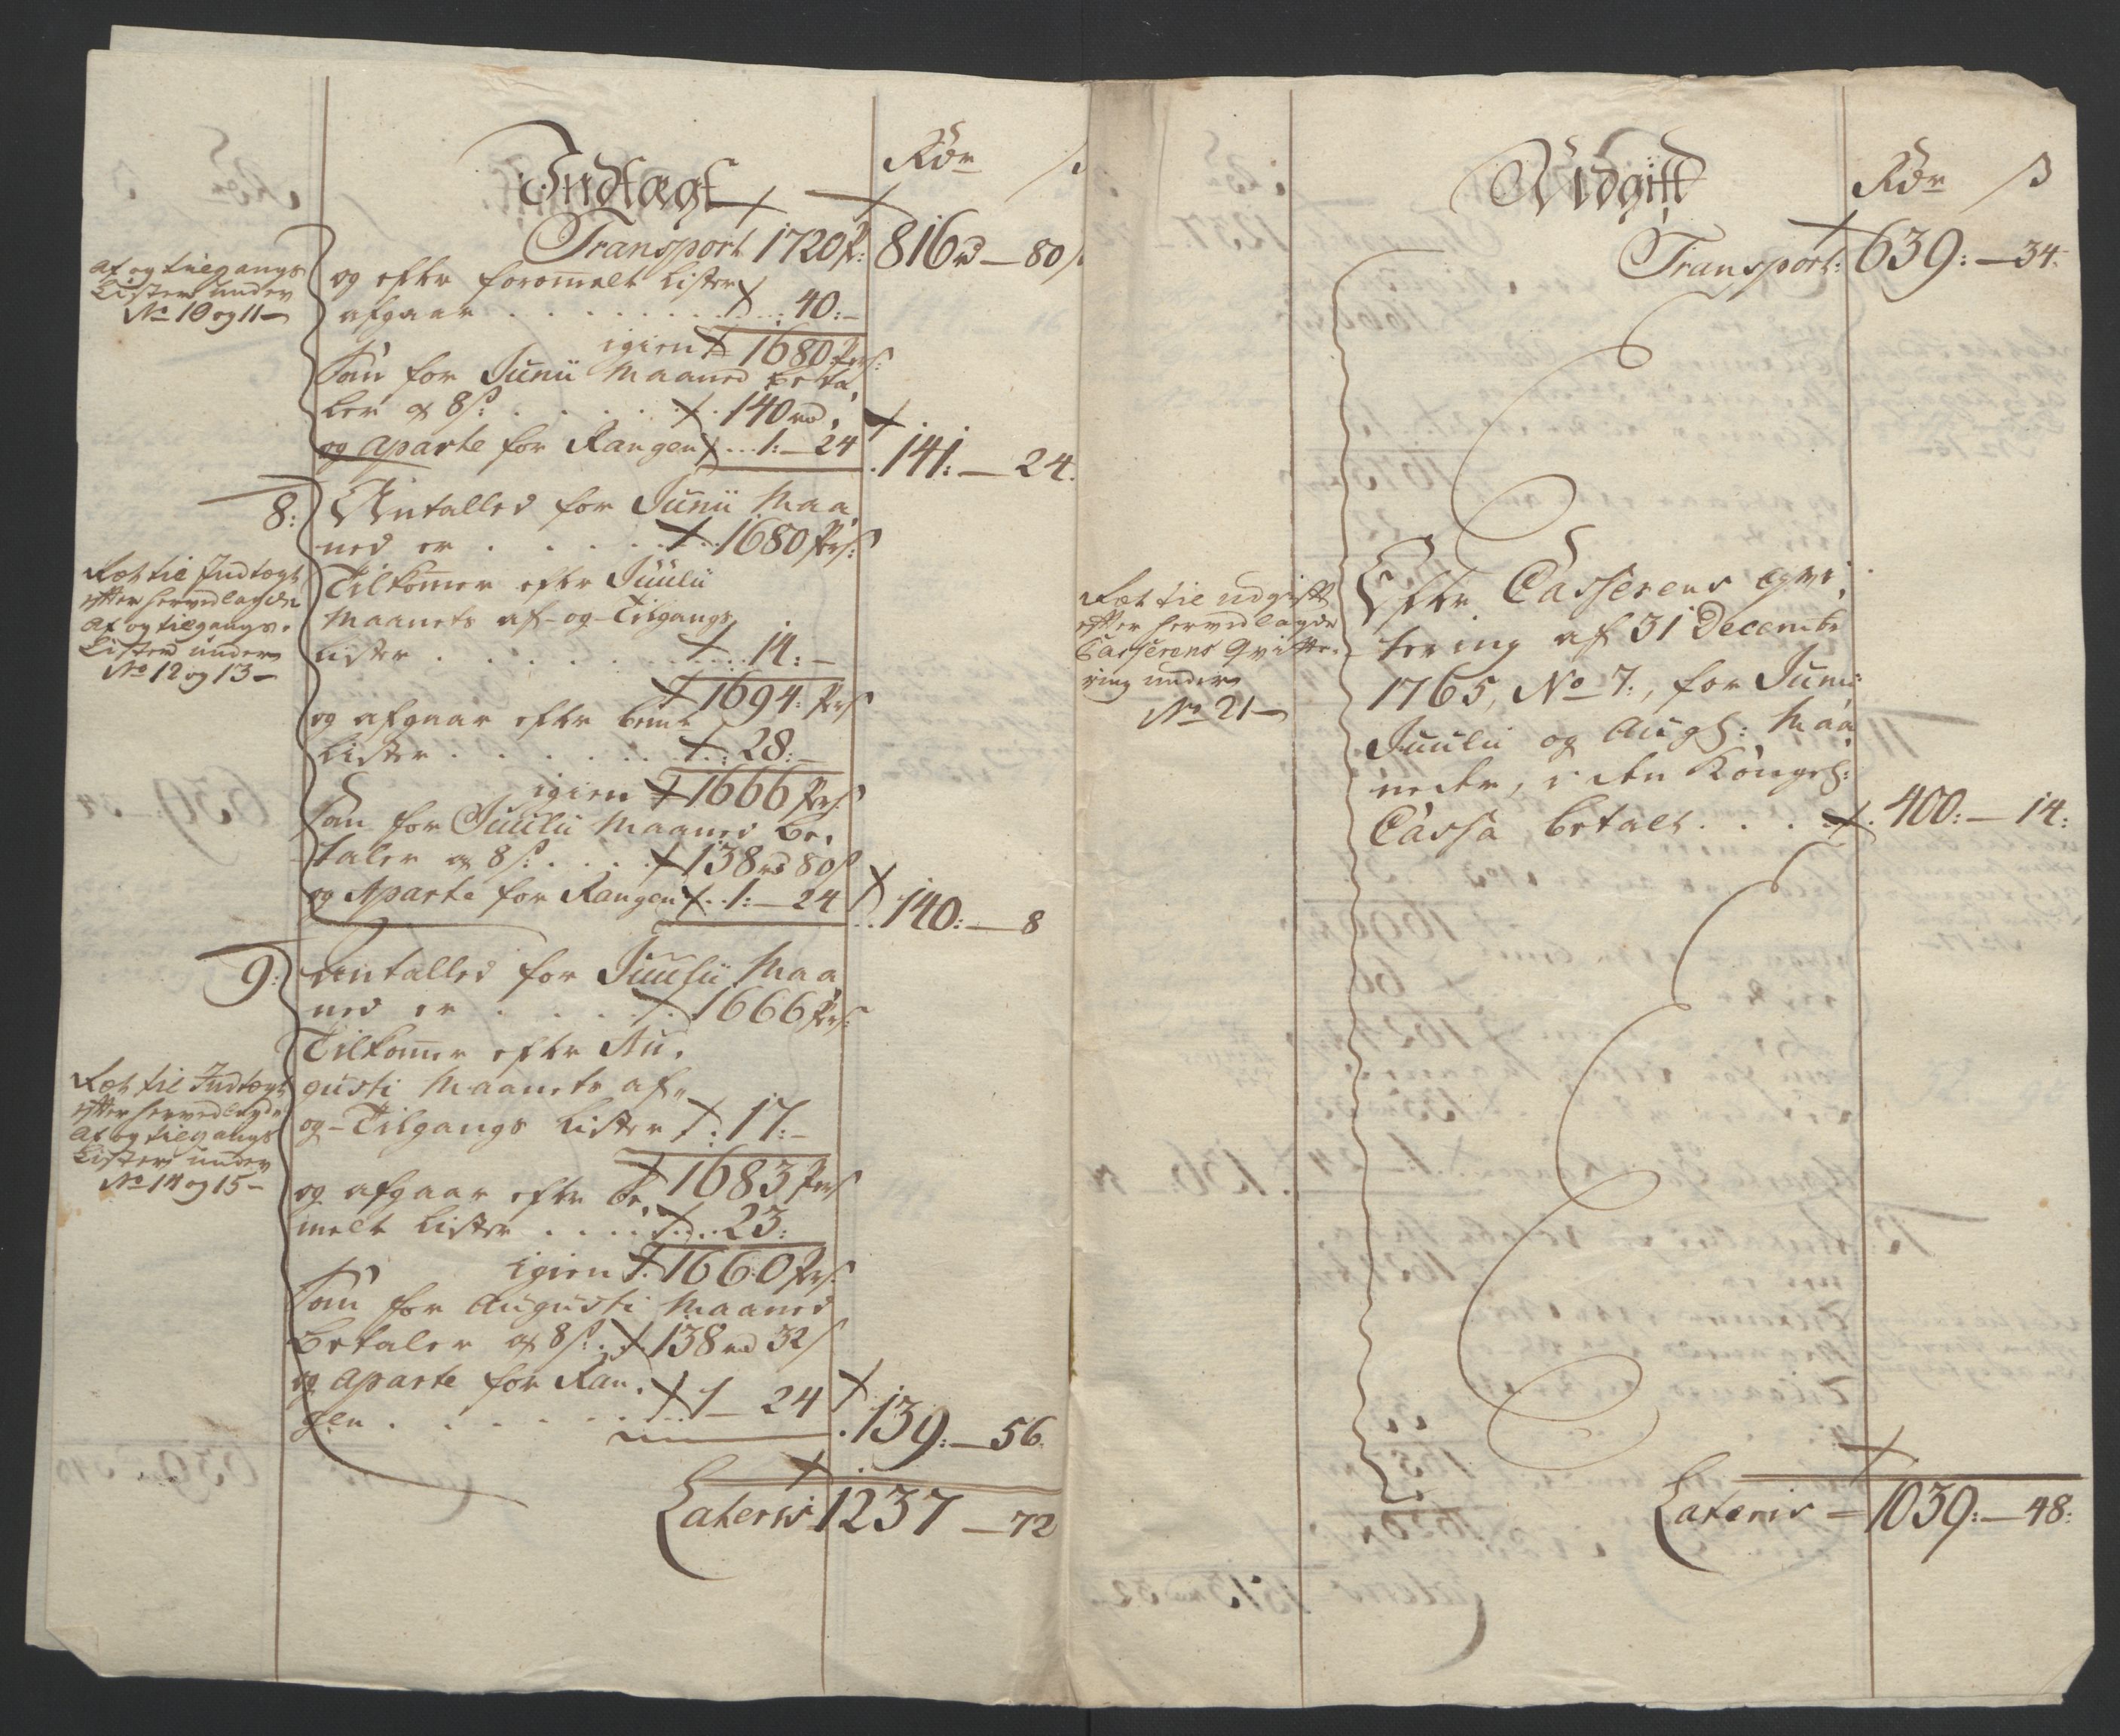 Indtægt
Rdr ß
Transport 1720 P: 816 rd — 80 ß
af og tilgangs
Lister under
No 10 og 11 —
og efter foromelt Lister
afgaar . . . . . . . 40: —
igien 1680 Prs:
som for Junii Maaned beta,
ler a 8 ß: . . . . 140 rd,
og aparte for Rangen . . . 1: — 24
141: — 24.
8: Antalled for Junii Maa,
ned er . . . . . . 1680 Prs:
Ført til Indtægt
efter hervedlagde
af og tilgangs.
Lister under
No 12 og 13 —
Tilkomer efter Juulii
Maanets af- og Tilgangs
Lister . . . . . . . 14: —
1694: Prs
og afgaar efter bemt
Lister . . . . . . . 28: —
igien 1666 Prs:
som for Juulii Maaned be,
taler a 8 ß: . . . . 138 rd 80 ß
og Aparte for Rangen . . 1: — 24
140: — 8
9: Antalled for Juulii Maa,
ned er . . . . . 1666 Prs:
Tilkomer efter Au,
gusti Maanets af-
og Tilgangs Lister . 17: —
Ført til Indtægt
efter hervedlagde
af og tilgangs
Lister under
No 14 og 15 —
1683 Prs
og afgaar efter be,
melt Lister . . . . . . 23:
igien 1660 Prs:
som for Augusti Maaned
betaler a 8 ß: . 138 rd 32 ß
og aparte for Ran,
gen . . . . . . . 1 — 24
139: — 56.
Lateris 1237 — 72
Udgift
Rdr ß
Transport: 639: — 34:
Ført til udgift
efter hervedlagde
Casserens Qvitte-
ring under
No 21 —
Efter Casserens Qvi,
tering af 31 Decembr
1765, No 7:, for Junii
Juulii og Aug: Maa,
neder, i den Kongel:
Cassa betalt . . . . . 400: — 14:
Lateris — 1039: — 48: